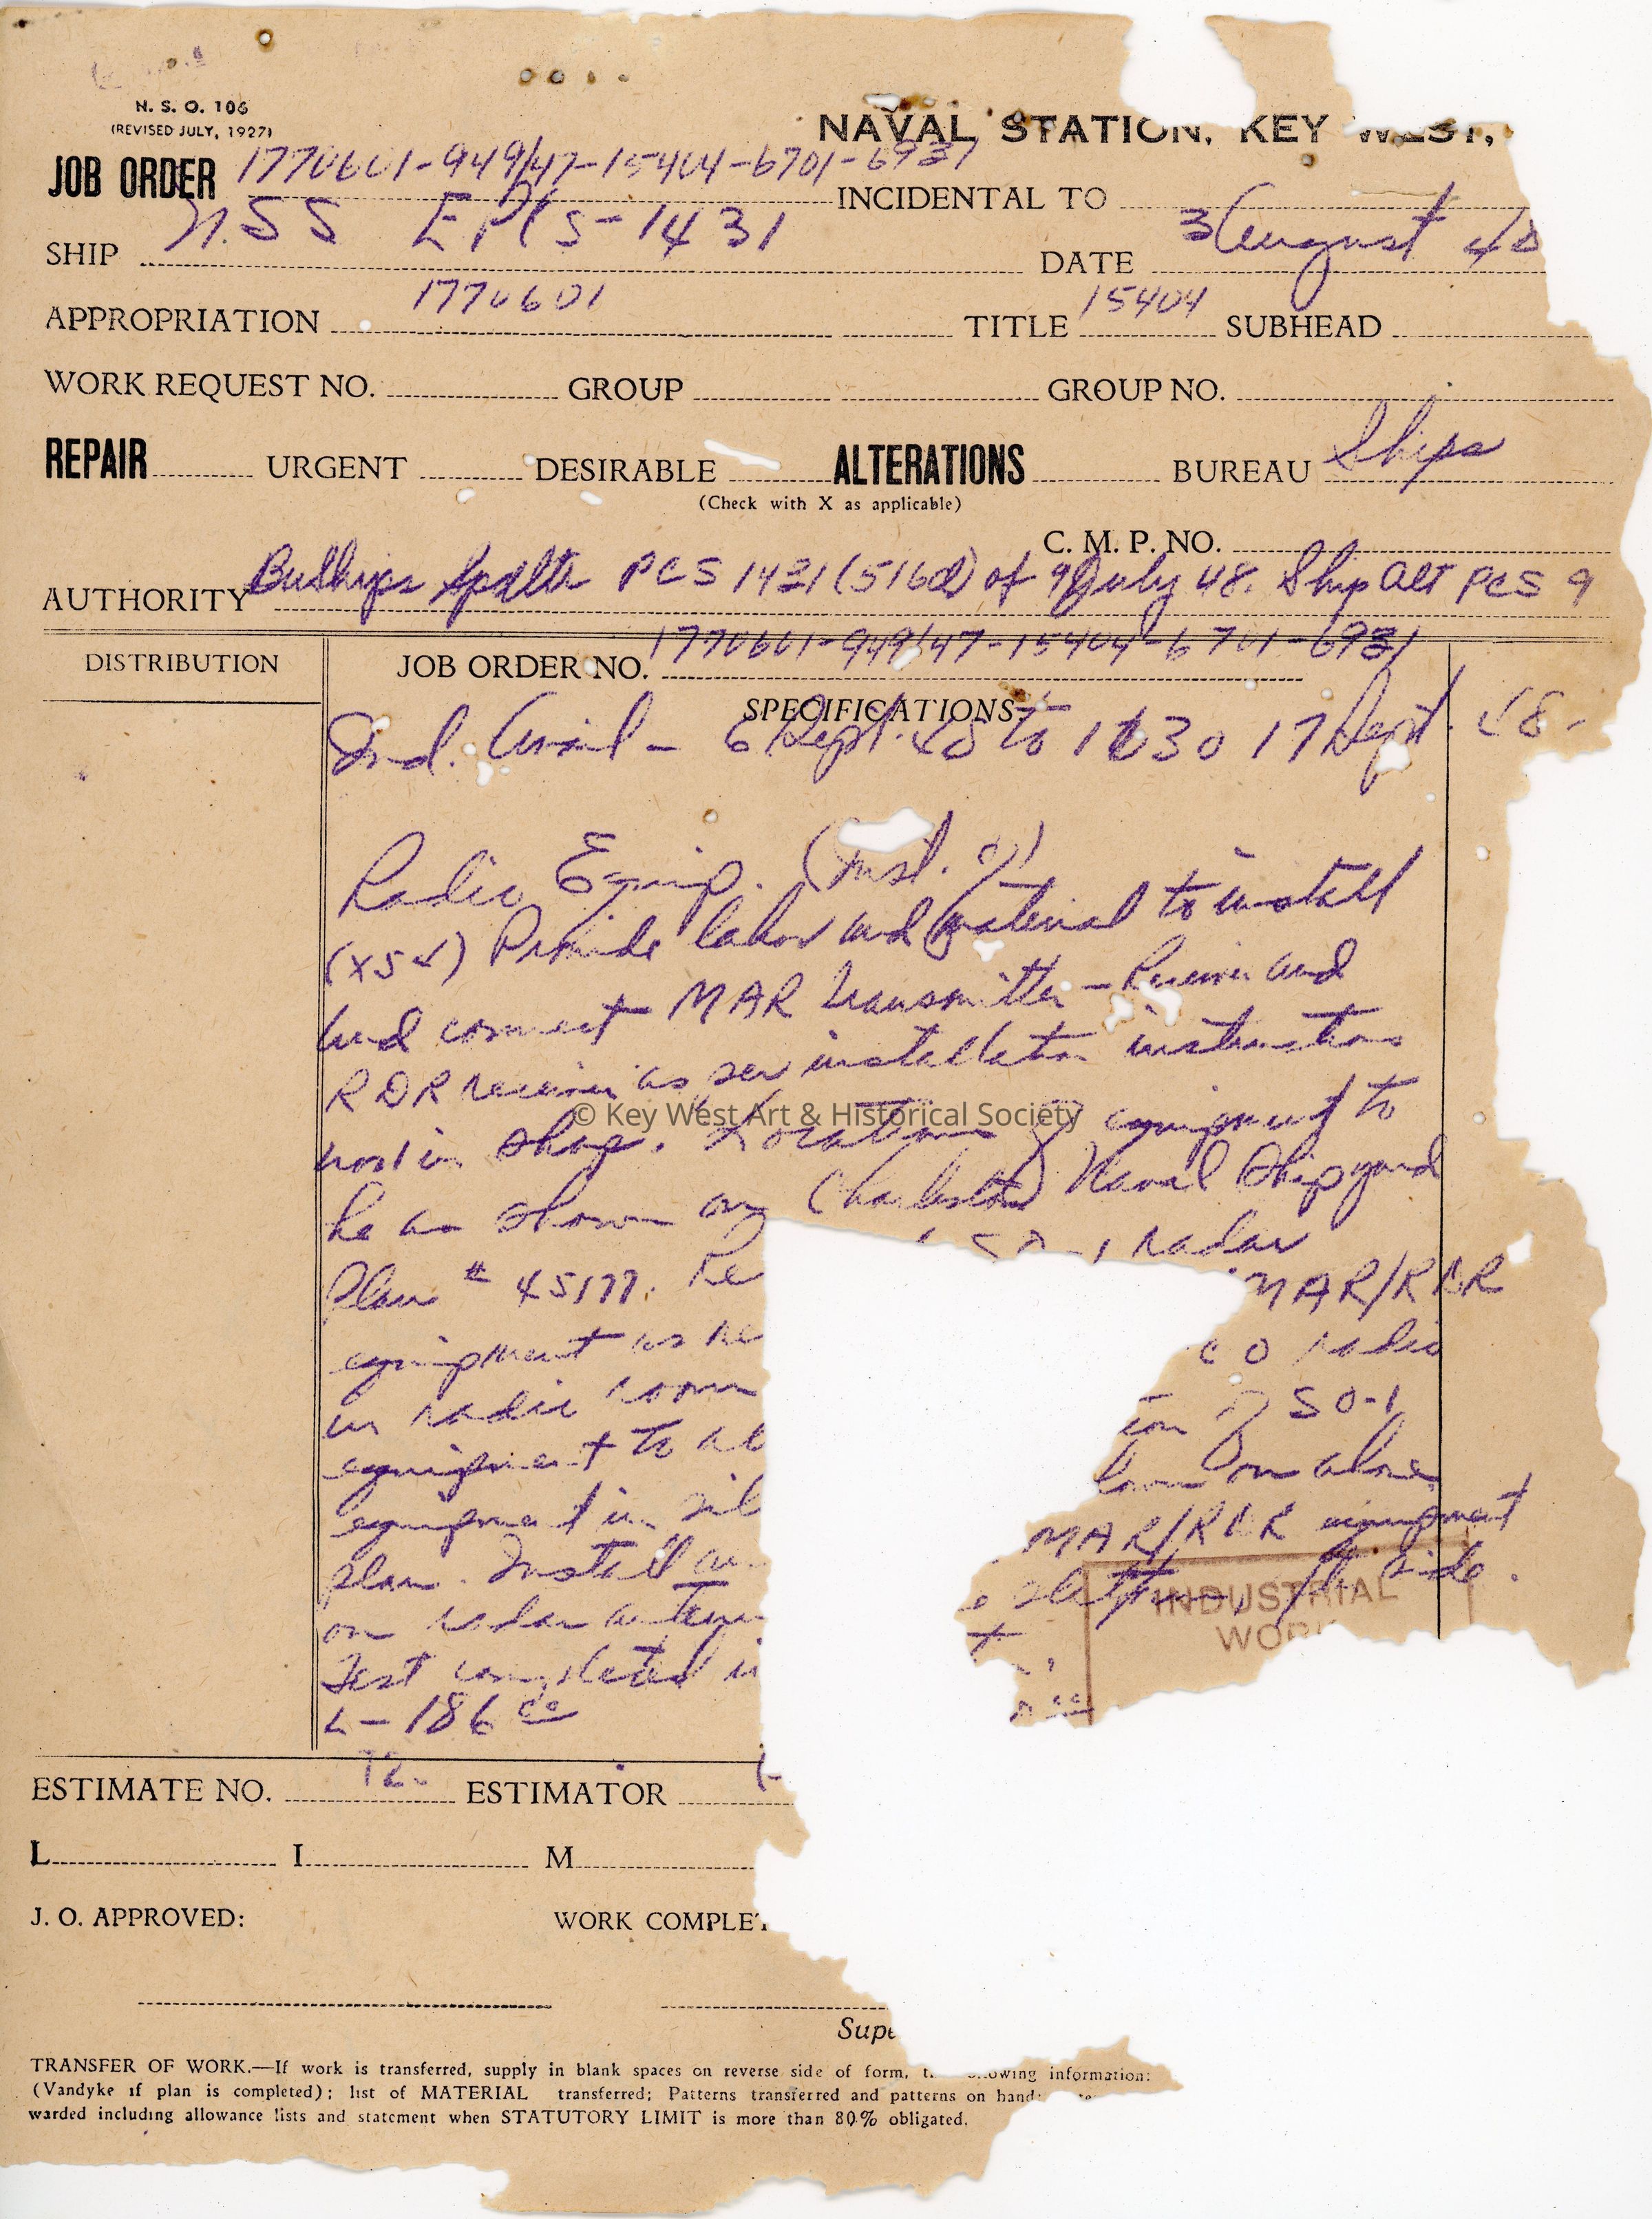 N. S. O. 106
(REVISED JULY, 1927)
NAVAL STATION, KEY WEST,
JOB ORDER 1770601-949/47-15404-6701-6931
INCIDENTAL TO
SHIP USS EPCS-1431 DATE 3 August 48
APPROPRIATION 1770601 TITLE 15404 SUBHEAD
WORK REQUEST NO. GROUP GROUP NO.
REPAIR URGENT DESIRABLE ALTERATIONS BUREAU Ships
(Check with X as applicable)
C. M. P. NO.
AUTHORITY BuShips PCS 1431 (516d) of 9 July 48. Ship Alt PCS 9
DISTRIBUTION
JOB ORDER NO. 1770601-949/47-15404-6701-6931
SPECIFICATIONS
Ind. Avail - 6 Sept. 48 to 1630 17 Sept. 48-
Radio Equip. (Inst. of)
(X54) Provide labor and material to install
and connect MAR transmitter - Receiver and
RDR receiver as per installation instructions
in shop. Location of equipment to
be as shown on Charleston Naval Shipyard
Plan # 45177. Re radar
equipment as re MAR/RDR
in radio room CO radio
equipment to al ion of SO-1
equipment in on above
plan. Install MAR/RDR equipment
on radar side.
Test completed
L-186
INDUSTRIAL
WOR
ESTIMATE NO. 72- ESTIMATOR
L I M
J. O. APPROVED: WORK COMPLET
Supe
TRANSFER OF WORK.—If work is transferred, supply in blank spaces on reverse side of form, t owing information:
(Vandyke if plan is completed); list of MATERIAL transferred; Patterns transferred and patterns on hand;
warded including allowance lists and statement when STATUTORY LIMIT is more than 80% obligated.
© Key West Art & Historical Society